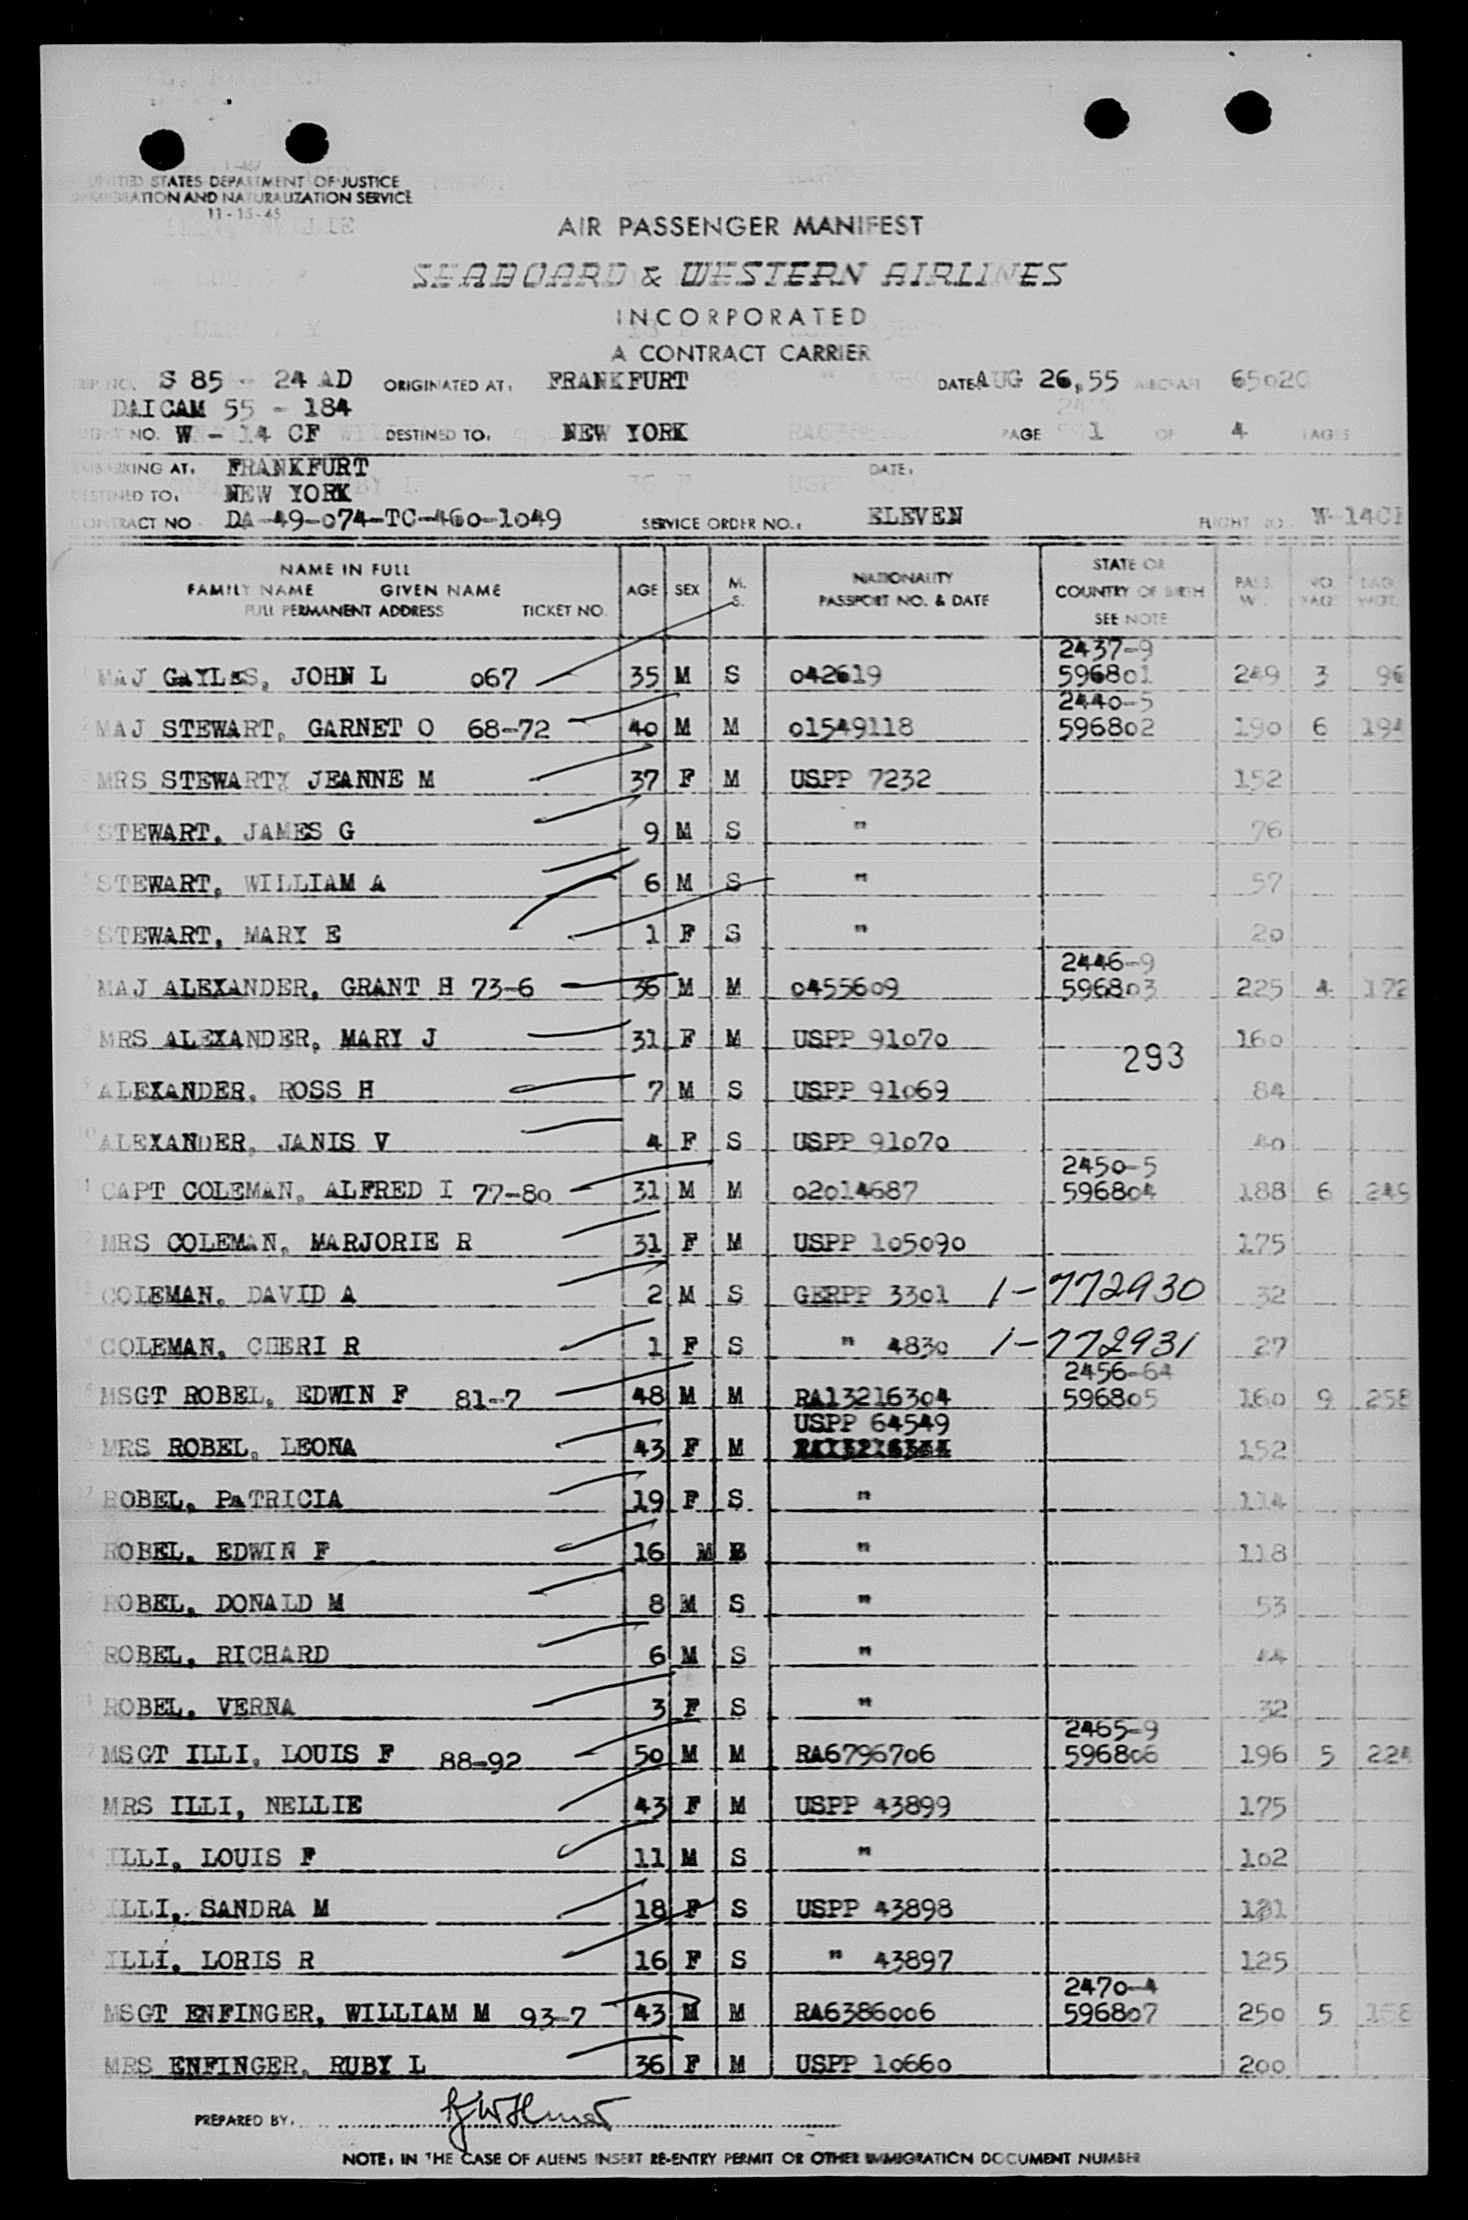 1-467
UNITED STATES DEPARTMENT OF JUSTICE
IMMIGRATION AND NATURALIZATION SERVICE
11-15-45
AIR PASSENGER MANIFEST
SEABOARD & WESTERN AIRLINES
INCORPORATED
A CONTRACT CARRIER
TRIP NO. S 85 - 24 AD ORIGINATED AT, FRANKFURT DATE, AUG 26, 55 AIRCRAFT 6502C
DAICAM 55 - 184
FLIGHT NO. W - 14 CF DESTINED TO, NEW YORK PAGE 1 OF 4 PAGES
EMBARKING AT, FRANKFURT DATE,
DESTINED TO, NEW YORK
CONTRACT NO DA-49-074-TC-460-1049 SERVICE ORDER NO., ELEVEN FLIGHT NO. W-14CF
NAME IN FULL
FAMILY NAME GIVEN NAME
FULL PERMANENT ADDRESS TICKET NO. AGE SEX M. S. NATIONALITY PASSPORT NO. & DATE STATE OR COUNTRY OF BIRTH SEE NOTE PASS. WT. NO BAGS BAG. WGT.
2437-9
MAJ GAYLES, JOHN L 067 35 M S 042619 596801 249 3 96
2440-5
MAJ STEWART, GARNET O 68-72 40 M M 01549118 596802 190 6 194
MRS STEWART, JEANNE M 37 F M USPP 7232 152
STEWART, JAMES G 9 M S " 76
STEWART, WILLIAM A 6 M S " 57
STEWART, MARY E 1 F S " 20
2446-9
MAJ ALEXANDER, GRANT H 73-6 36 M M 0455609 596803 225 4 172
MRS ALEXANDER, MARY J 31 F M USPP 91070 160
293
ALEXANDER, ROSS H 7 M S USPP 91069 84
ALEXANDER, JANIS V 4 F S USPP 91070 40
2450-5
CAPT COLEMAN, ALFRED I 77-80 31 M M 02014687 596804 188 6 249
MRS COLEMAN, MARJORIE R 31 F M USPP 105090 175
COLEMAN, DAVID A 2 M S GERPP 3301 1-772930 32
COLEMAN, CHERI R 1 F S " 4830 1-772931 27
2456-64
MSGT ROBEL, EDWIN F 81-7 48 M M RA13216304 596805 160 9 258
USPP 64549
MRS ROBEL, LEONA 43 F M 152
ROBEL, PATRICIA 19 F S " 114
ROBEL, EDWIN F 16 M " 118
ROBEL, DONALD M 8 M S " 53
ROBEL, RICHARD 6 M S " 44
ROBEL, VERNA 3 F S " 32
2465-9
MSGT ILLI, LOUIS F 88-92 50 M M RA6796706 596806 196 5 224
MRS ILLI, NELLIE 43 F M USPP 43899 175
ILLI, LOUIS F 11 M S " 102
ILLI, SANDRA M 18 F S USPP 43898
ILLI, LORIS R 16 F S " 43897 125
2470-4
MSGT ENFINGER, WILLIAM M 93-7 43 M M RA6386006 596807 250 5 158
MRS ENFINGER, RUBY L 36 F M USPP 10660 200
PREPARED BY,
NOTE, IN THE CASE OF ALIENS INSERT RE-ENTRY PERMIT OR OTHER IMMIGRATION DOCUMENT NUMBER